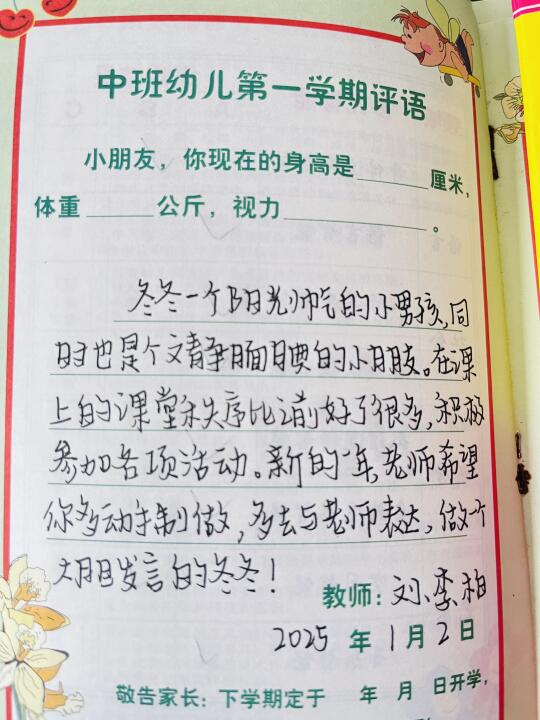 中班幼儿第一学期评语
小朋友，你现在的身高是______厘米，
体重______公斤，视力____________。
冬冬一个阳光帅气的小男孩，同
时也是个文静腼腆的小朋友。在课
上的课堂秩序比之前好了很多，积极
参加各项活动。新的一年，老师希望
你多动手制做，多去与老师表达，做一个
大胆发言的冬冬！
教师：刘、李、柏
2025 年 1 月 2 日
敬告家长：下学期定于 年 月 日开学，